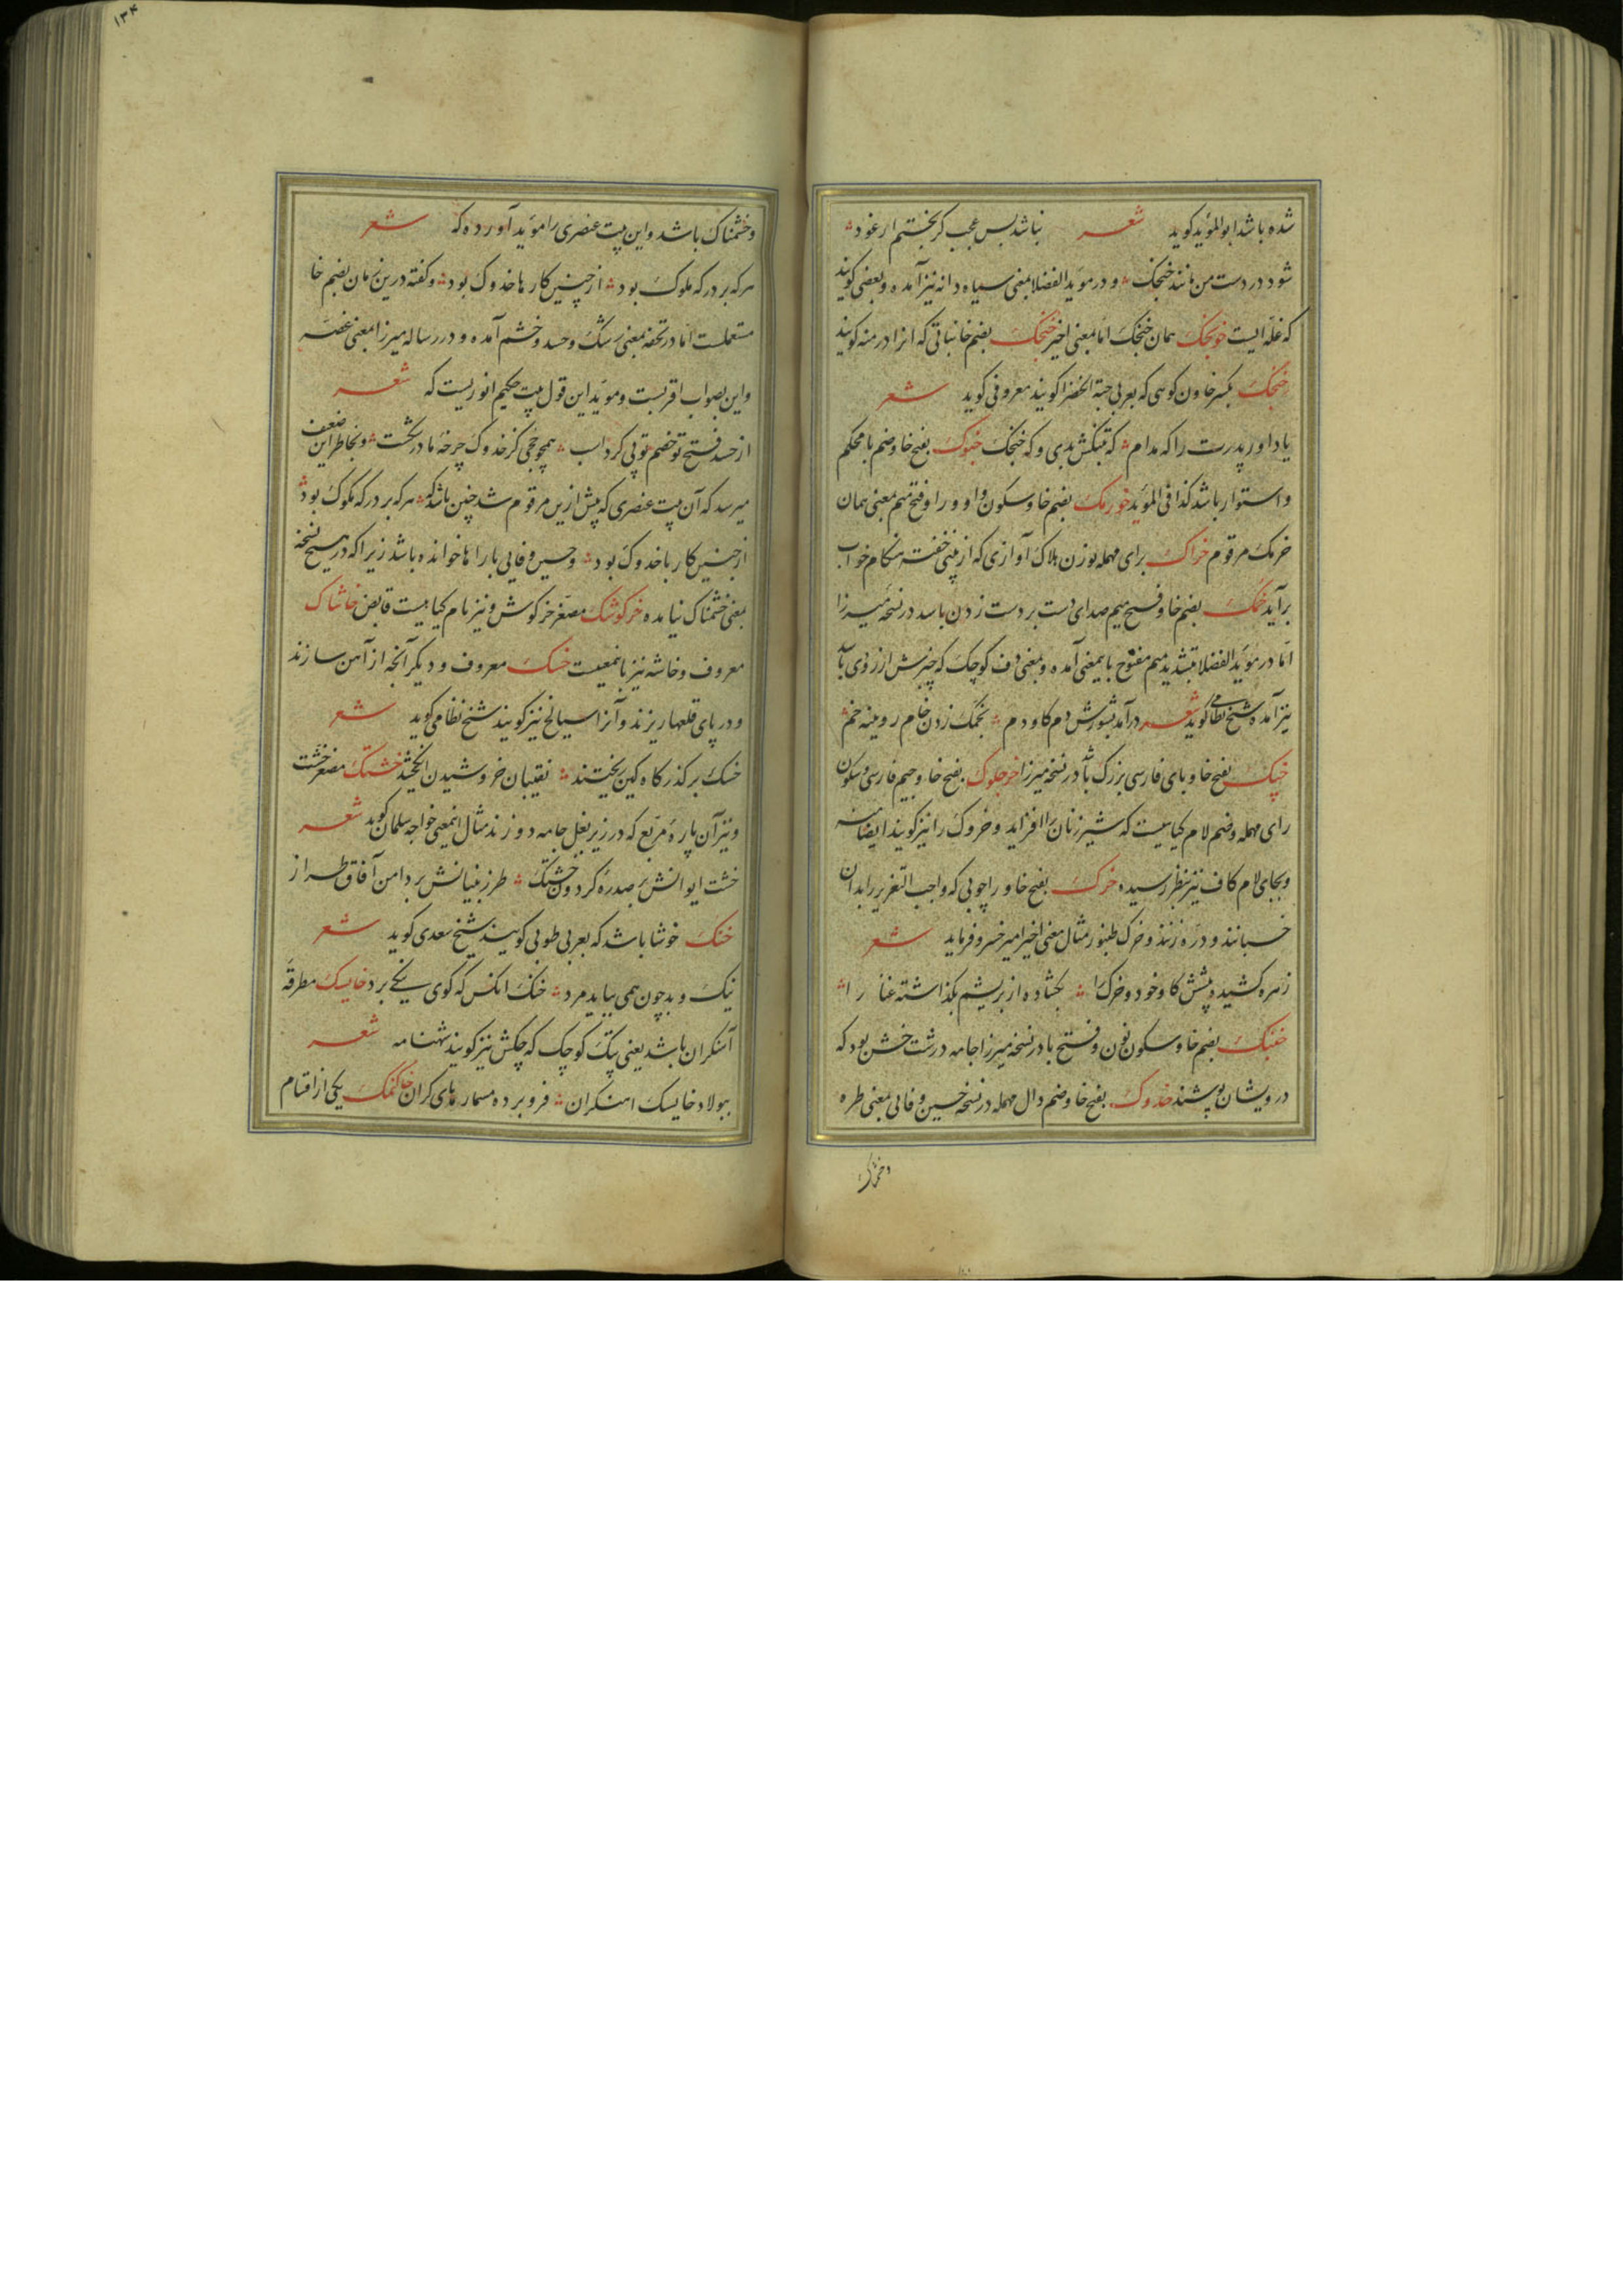 شده باشد ابوالموید کوید شعر نباشد بس عجب کر بختم ارغود
شود در دست من مانند خنجک و در موید الفضلا بمعنی سیاه دانه نیز آمده و بعضی کویند
که غله ایست خونجک همان خنجک اما بمعنی اخیر خنجک بضم خا نباتی که انرا درمنه کویند
خنجک بکسر خا ون کوهی که بعربی حبة الخضرا کویند معروفی کوید شعر
یاد اور پدرت را که مدام که تبنکش بدی و که خنجک خبوک بفتح خا و ضم با محکم
و استوار باشد کذا فی الموید خورمک بضم خا و سکون واو و را و فتح میم بمعنی همان
خرمک مرقوم خراک برای مهمله بوزن هلاک آوازی که از بینی خفته هنکام خواب
برآید خمک بضم خا و فتح میم صدای دست بر دست زدن باسد در نسخه میرزا
اما در موید الفضلا بتشدید میم مفتوح باینمعنی آمده و بمعنی دف کوچک که چنبرش از روی باشد
نیز آمده شیخ نظامی کوید شعر درآمد بشورش دم کاودم بخمک زدن خام رویینه خم
خپک بفتح خا و بای فارسی بزرک باشد در نسخه میرزا خوجلوک بفتح خا و جیم فارسی و سکون
رای مهمله و ضم لام کیاهیست که شیر زنان را افزاید و خروک را نیز کویند ایضا منه
و بجای لام کاف نیز بنظر رسیده خرک بفتح خا و را چوبی که واجب التعزیر را بدان
خسبانند و دره زنند و خرک طنبور مثال معنی اخیر امیر خسرو فرماید شعر
زهره کشید پیشش کاو خود و خرک را بکشاده از بریشم بکذاشته عنا را
خنبک بضم خا و سکون نون و فتح با در نسخه میرزا جامه درشت خشن بود که
درویشان پوشند خدوک بفتح خا و ضم دال مهمله در نسخه حسین وفائی بمعنی طره
وخشمناک
۱۳۴
و خشمناک باشد و این بیت عنصری را موید آورده که شعر
هر که بر درکه ملوک بود از چنین کارها خدوک بود و کفته درین زمان بضم خا
مستعملست اما در تحفه بمعنی رشک و حسد و خشم آمده و در رساله میرزا بمعنی غصه
و این بصواب اقربست و موید این قول بیت حکیم انوریست که شعر
از حسد فتح تو خصم تو پی کرد اسب همچو جحی کز خدوک چرخه مادر شکست و بخاطر این ضعیف
میرسد که آن بیت عنصری که پیش ازین مرقوم شد چنین باشد که هر که بر درکه ملوک بود
از چنین کار با خدوک بود و حسین وفایی با را ها خوانده باشد زیرا که در هیچ نسخه
بمعنی خشمناک نیامده خرکوشک مصغر خرکوش و نیز نام کیاهیست قابض خاشاک
معروف و خاشه نیز باینمعنیست خسک معروف و دیکر آنچه از آهن سازند
و در پای قلعها ریزند و آنرا سیالخ نیز کویند شیخ نظامی کوید شعر
خسک بر کذرکاه کین ریختند نقیبان خروشیدن انکیختند خشتک مصغر خشت
و نیز آن پاره مربع که در زیر بغل جامه دوزند مثال اینمعنی خواجه سلمان کوید شعر
خشت ایوانش بر صدره کردون خشتک طرز بنیانش بر دامن آفاق طراز
خنک خوشا باشد که بعربی طوبی کویند شیخ سعدی کوید شعر
نیک و بد چون همی بباید مرد خنک انکس که کوی نیکی برد خایسک مطرقه
آهنکران باشد یعنی پتک کوچک که چکش نیز کویند شهنامه شعر
ببولاد خایسک اهنکران فرو برده مسمارهای کران خاکنمک یکی از اقسام